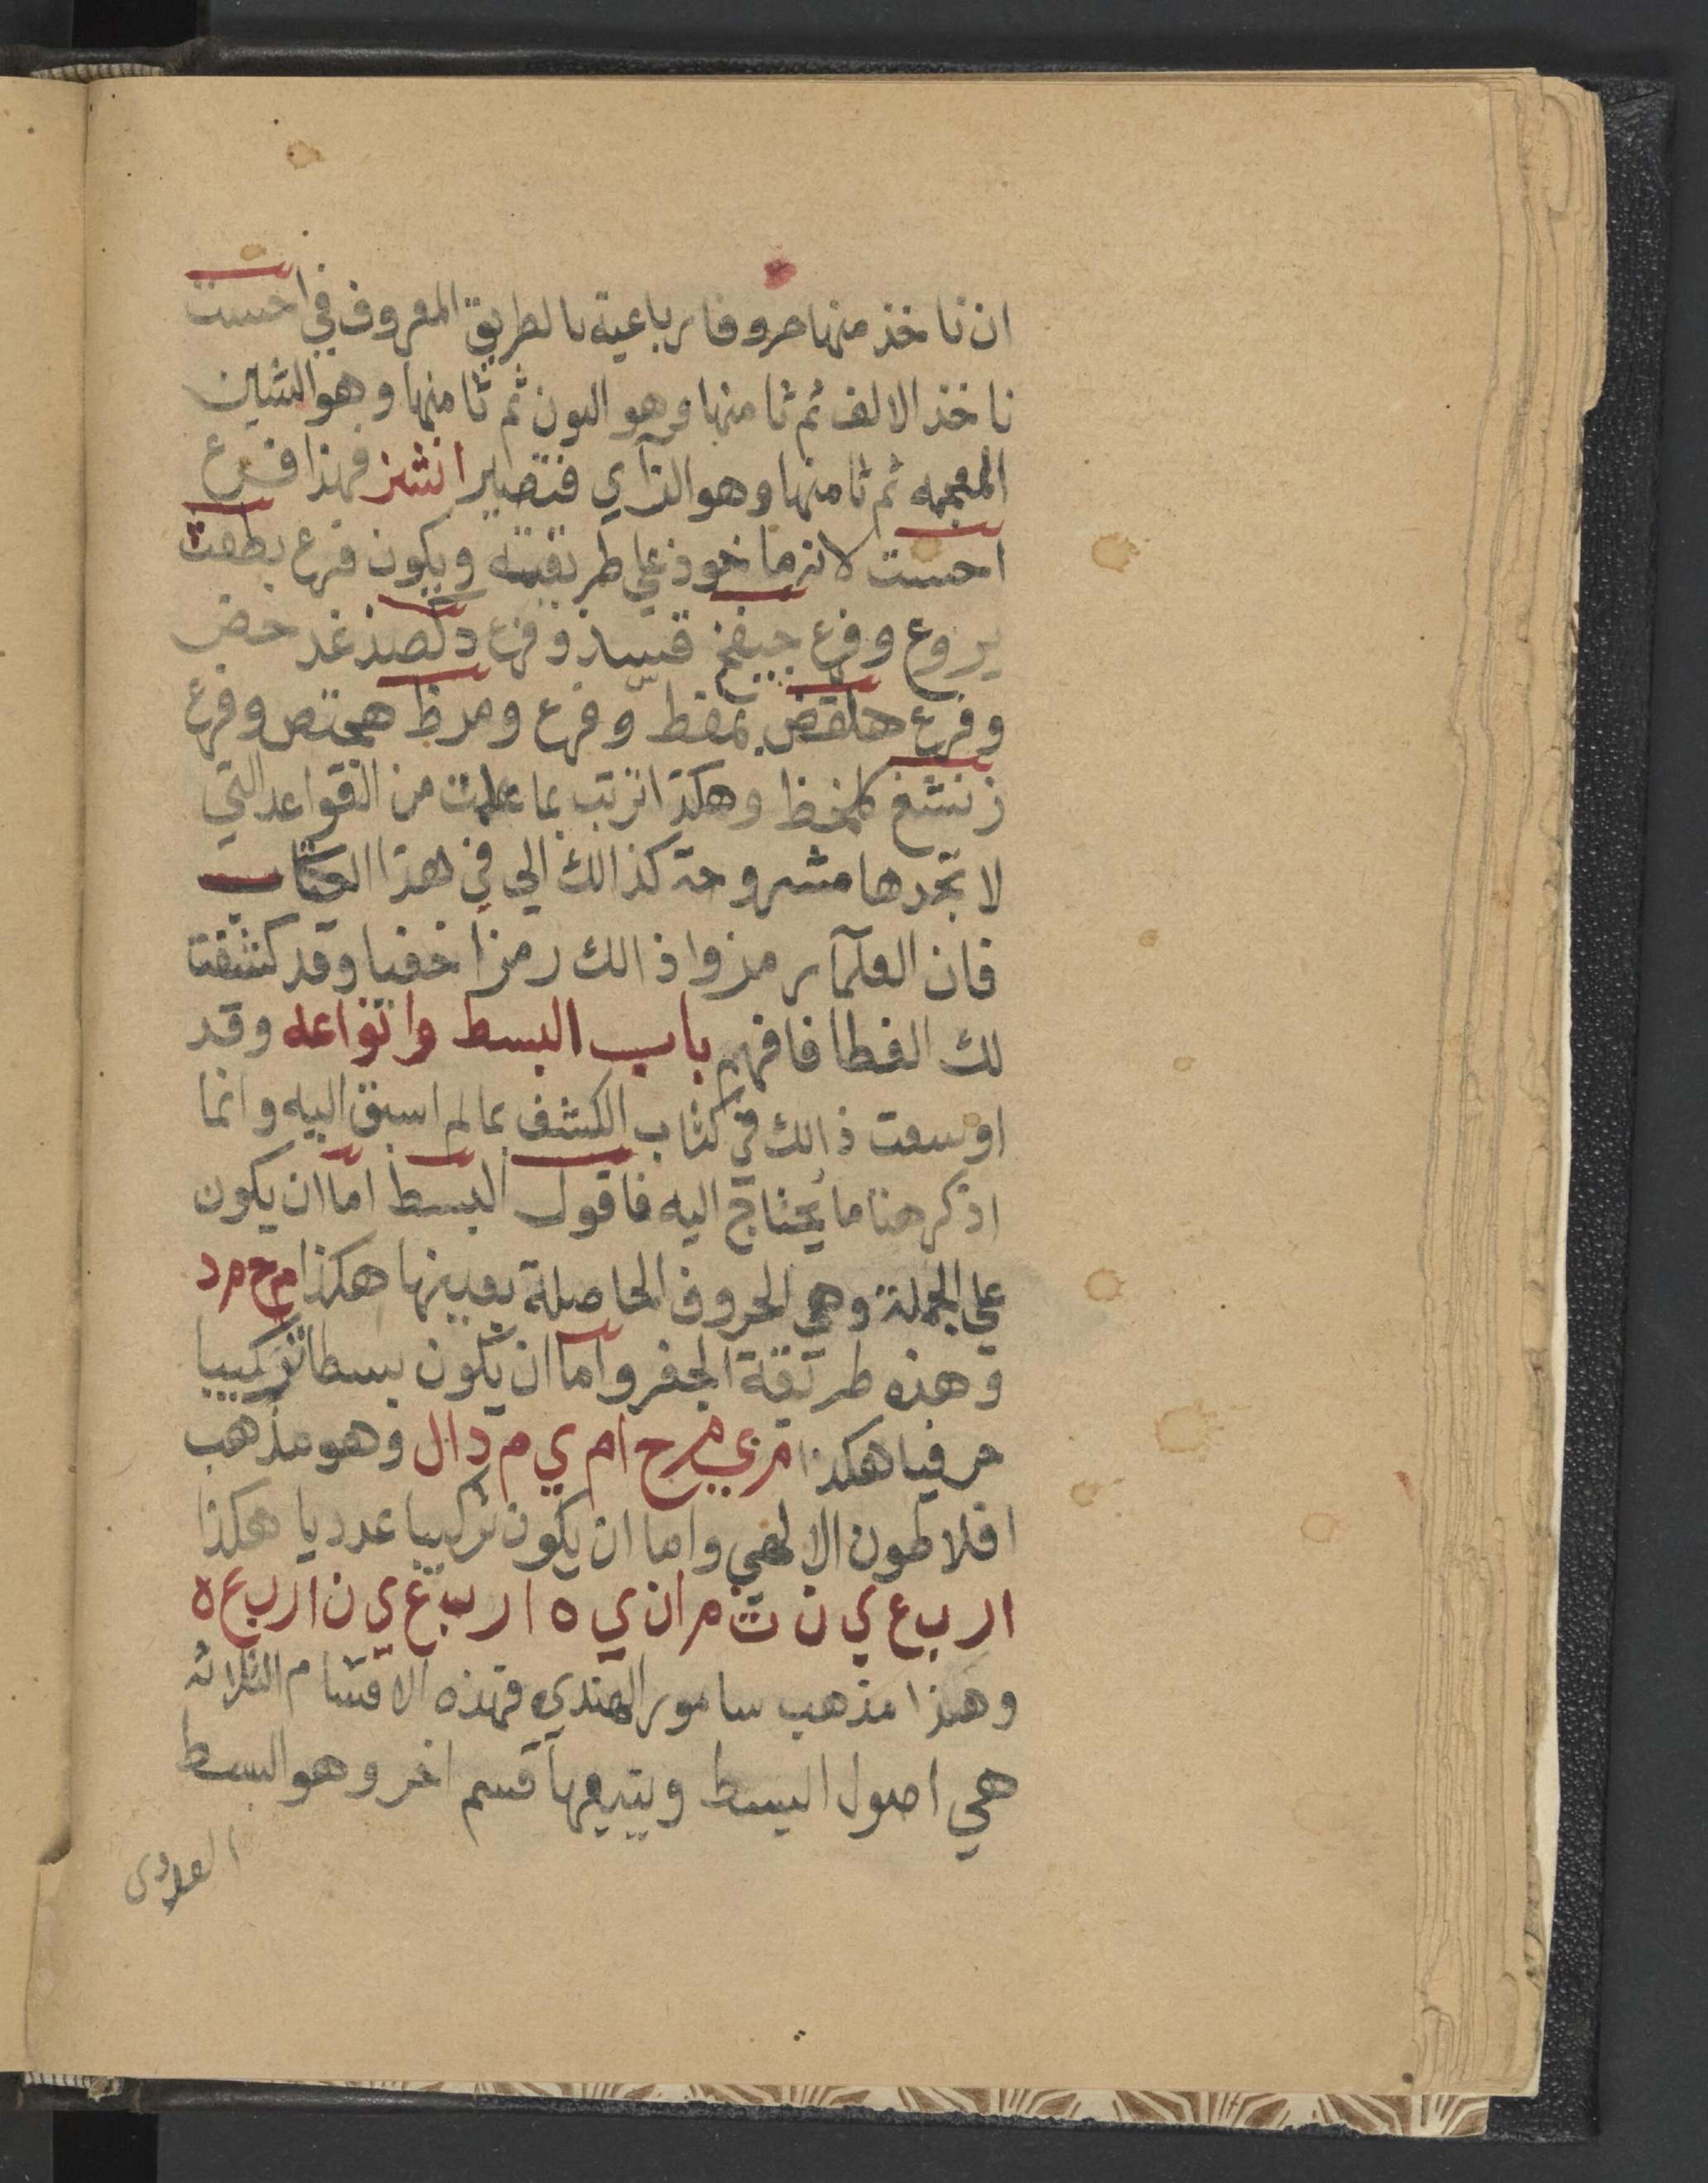 ان ناخذ منها حروفا رباعية بالطريق المعروف في احست
ناخذ الالف ثم ثامنها وهو النون ثم ثامنها وهو الشين
المعجمه ثم ثامنها وهو الزاي فتصير انشز فهذا فرع
احست لانه ماخوذ علي طريقته ويكون فرع بطعث
يروع وفرع جيفخ قسيذ وفرع دكصذ غد حض
وفرع هلقض بمفط وفرع ومرظ همتص وفرع
زنشغ كلمخظ وهكذا ترتب بما علمت من القواعد التي
لا تجدها مشروحة كذالك الي في هذا الكتاب
فان العلمآ رمزوا ذالك رمزا خفيا وقد كشفت
لك الغطا فافهم باب البسط وانواعه وقد
اوسعت ذالك في كتاب الكشف بما لم اسبق اليه وانما
اذكر هنا ما يحتاج اليه فاقول البسط اما ان يكون
علي الجملة وهي الحروف الحاصلة بعينها هكذا م ح م د
وهذه طريقة الجفر واما ان يكون بسطا تركيبيا
حرفيا هكذا م ي م ح ا م ي م د ا ل وهو مذهب
افلاطون الالهي واما ان يكون تركيبيا عدديا هكذا
ا ر ب ع ي ن ث م ا ن ي ه ا ر ب ع ي ن ا ر ب ع ه
وهذا مذهب سامور الهندي فهذه الاقسام الثلاثه
هي اصول البسط ويتبعها قسم اخر وهو البسط